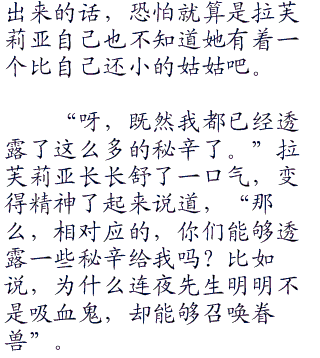 出来的话，恐怕就算是拉芙
莉亚自己也不知道她有着一
个比自己还小的姑姑吧。
“呀，既然我都已经透
露了这么多的秘辛了。”拉
芙莉亚长长舒了一口气，变
得精神了起来说道，“那
么，相对应的，你们能够透
露一些秘辛给我吗？比如
说，为什么连夜先生明明不
是吸血鬼，却能够召唤眷
兽”。